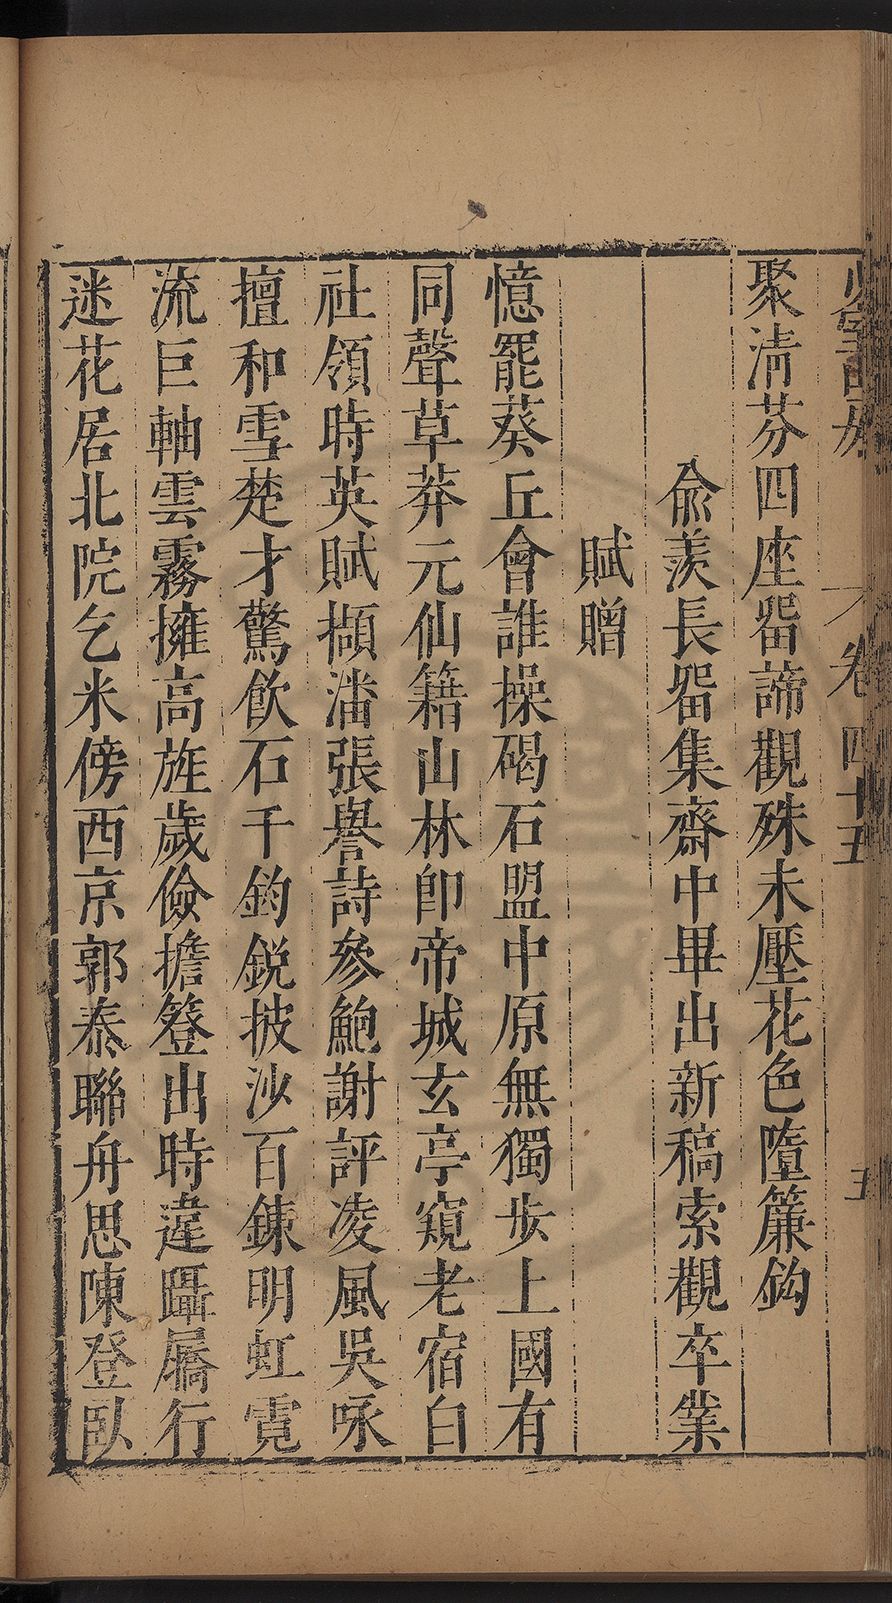 卷四十五
五
聚清芬四座畱諦觀殊未壓花色墮簾鈎
俞羨長畱集齋中畢出新稿索觀卒業
賦贈
憶罷葵丘會誰操碣石盟中原無獨步上國有
同聲草莽元仙籍山林卽帝城玄亭窺老宿白
社領時英賦擷潘張譽詩參鮑謝評凌風吳咏
擅和雪楚才驚飲石千鈞銳披沙百鍊明虹霓
流巨軸雲霧擁高旌歲儉擔簦出時違躡屩行
迷花居北院乞米傍西京郭泰聯舟思陳登臥